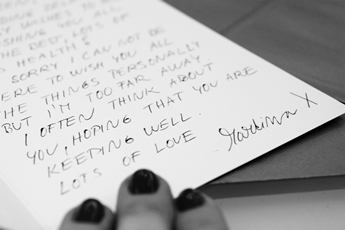 WISHING YOU ALL
THE BEST, LOTS OF
HEALTH &
SORRY I CAN NOT BE
HERE TO WISH YOU ALL
THE THINGS PERSONALLY
BUT I'M TOO FAR AWAY
I OFTEN THINK ABOUT
YOU, HOPING THAT YOU ARE
KEEPING WELL.
LOTS OF LOVE
X